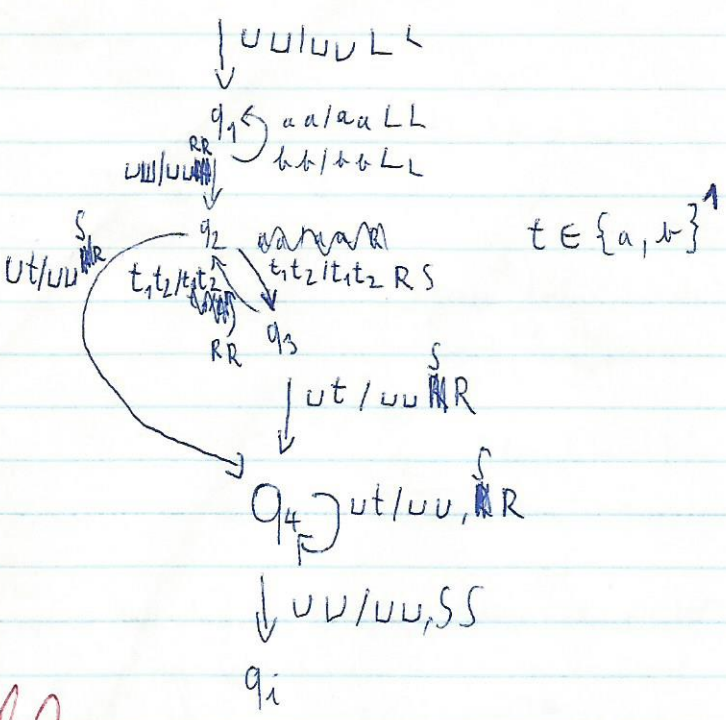 ⊔⊔/⊔⊔ L L
q₁ aa/aa LL
bb/bb LL
RR
⊔⊔/⊔⊔
q₂
t ∈ {a, b}¹
S
⊔t/⊔⊔ R
t₁t₂/t₁t₂ R S
t₁t₂/t₁t₂
RR
q₃
S
⊔t/⊔⊔ R
S
q₄ ⊔t/⊔⊔, R
⊔⊔/⊔⊔, SS
qi